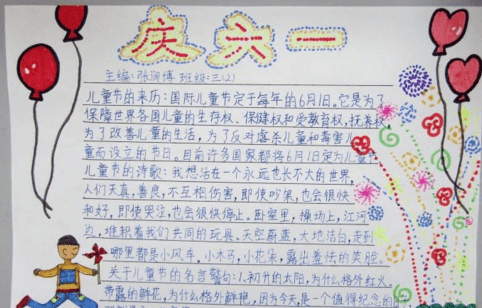 庆六一
主编:张润博 班级:三(2)
儿童节的来历:国际儿童节定于每年的6月1日。它是为了
保障世界各国儿童的生存权、保健权和受教育权,抚养权,
为了改善儿童的生活,为了反对虐杀儿童和毒害儿
童而设立的节日。目前许多国家都将6月1日定为儿童节
儿童节的诗歌:我想活在一个永远也长不大的世界,
人们天真,善良,不互相伤害,即使吵架,也会很快
和好,即使哭泣,也会很快停止。卧室里,操场上,江河
边,堆积着我们共同的玩具。天空蔚蓝,大地洁白,走到
哪里都是小风车,小木马,小花朵,露出着怯的笑脸
关于儿童节的名言警句:1.初升的太阳,为什么格外火红,
带露的鲜花,为什么格外鲜艳,因为今天,是一个值得纪念的